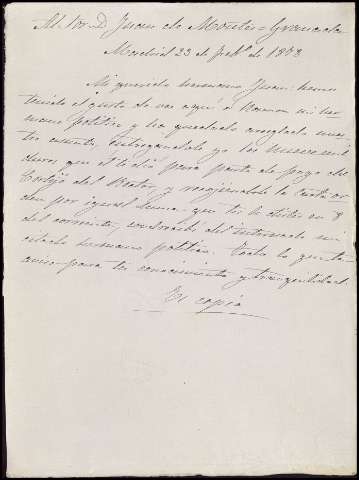 Al Sr. D. Juan de Montes = Granada
Madrid 23 de Feb.º de 1873
Mi querido hermano Juan: hemos
tenido el gusto de ver aquí a Ramon mi her
mano político y ha quedado arreglado nues
tro asunto, entregandole yo los nueve mil
duros, que el te dió para pago del
Cortijo del Beator, y recojiendole la Carta or
den por igual suma, que tu le distes en 8
del corriente, endosada del interesado mi
citado hermano político. Todo lo que te
aviso para tu conocimiento y tranquilidad.
Es copia